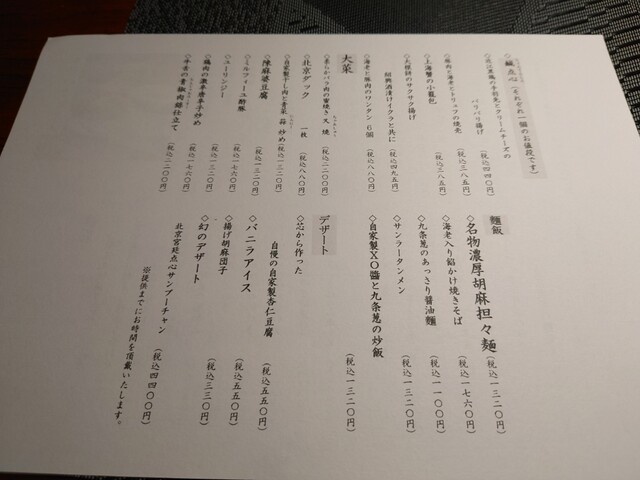 ◇鹹点心（それぞれ一個のお値段です）
◇近江黒鶏の手羽先とクリームチーズの
パリパリ揚げ
（税込四四〇円）
◇豚肉と海老とトリュフの焼売
（税込三八五円）
◇上海蟹の小籠包
（税込三八五円）
◇大根餅のサクサク揚げ
紹興酒漬けイクラと共に
（税込四九五円）
◇海老と豚肉のワンタン 6個
（税込八八〇円）
大菜
◇柔らかバラ肉の蜜焼き叉焼
（税込二二〇〇円）
◇北京ダック 一枚
（税込八八〇円）
◇自家製干し肉と青菜 蒜 炒め
（税込一三二〇円）
◇陳麻婆豆腐
（税込一三二〇円）
◇ミルフィーユ酢豚
（税込一七六〇円）
◇ユーリンジー
（税込一三二〇円）
◇鶏肉の激辛唐辛子炒め
（税込一七六〇円）
◇牛舌の青椒肉絲仕立て
（税込二二〇〇円）
麺飯
◇名物濃厚胡麻担々麺
（税込一三二〇円）
◇海老入り餡かけ焼きそば
（税込一七六〇円）
◇九条葱のあっさり醤油麺
（税込一一〇〇円）
◇サンラータンメン
（税込一三二〇円）
◇自家製XO醬と九条葱の炒飯
（税込一三二〇円）
デザート
◇芯から作った
自慢の自家製杏仁豆腐
（税込五五〇円）
◇バニラアイス
（税込五五〇円）
◇揚げ胡麻団子
（税込三三〇円）
◇幻のデザート
北京宮廷点心サンプーチャン
（税込四四〇〇円）
※提供までにお時間を頂戴いたします。